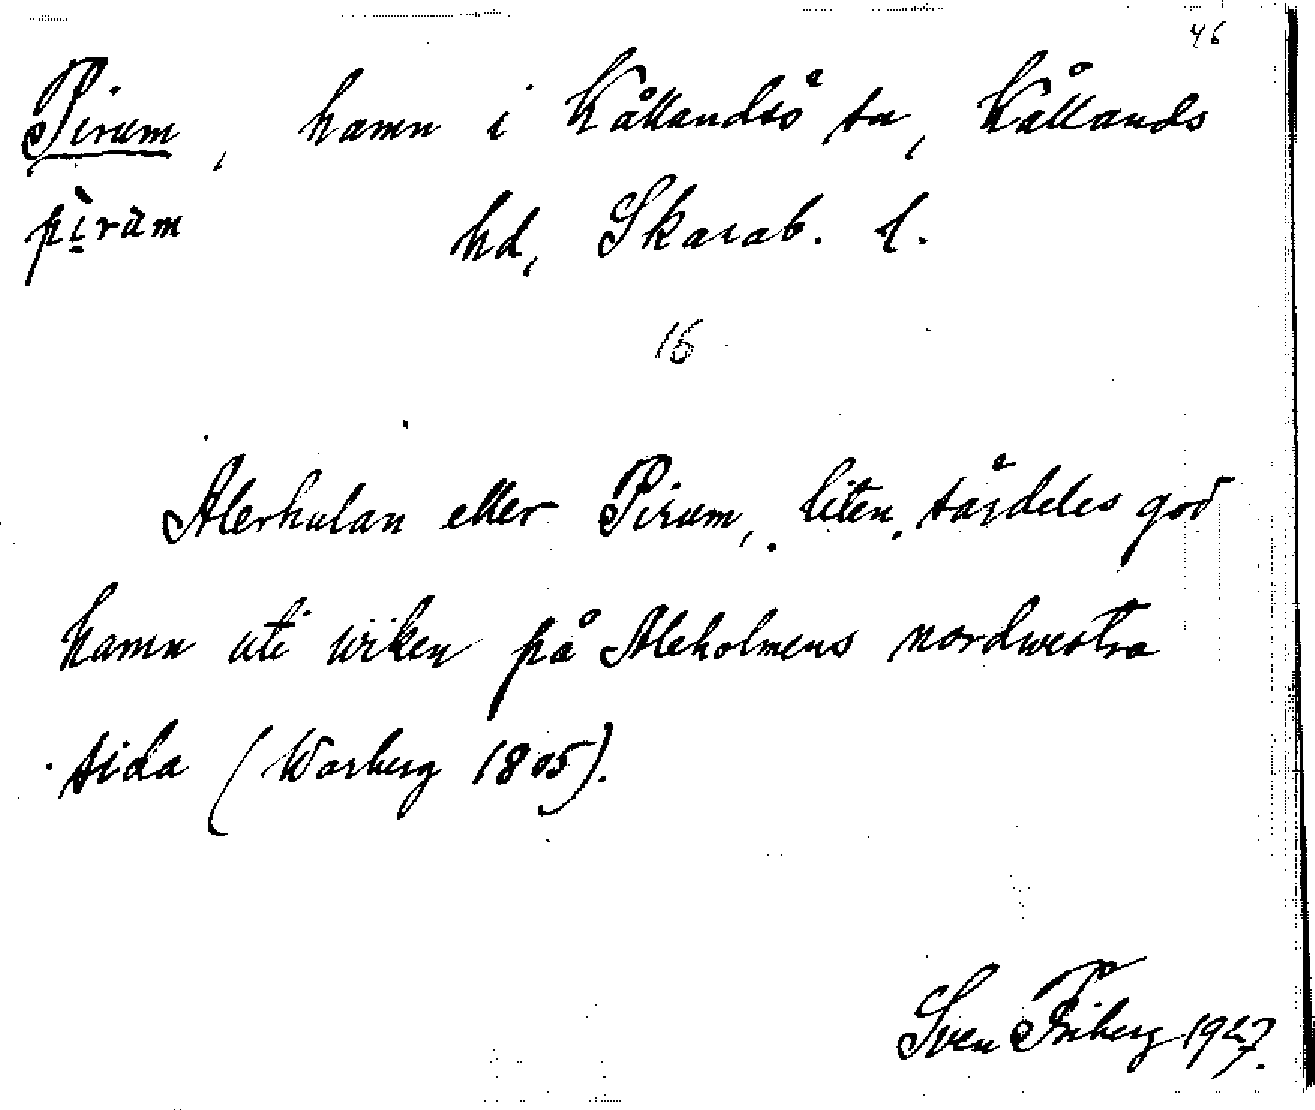 46
Pirum, hamn i Kållandsö sn, Kållands
pìrum hd, Skarab. l.
16
Alerhulan eller Pirum, liten, särdeles god
hamn uti wiken på Aleholmens nordwestra
sida (Warberg 1805).
Sven Friberg 1927.